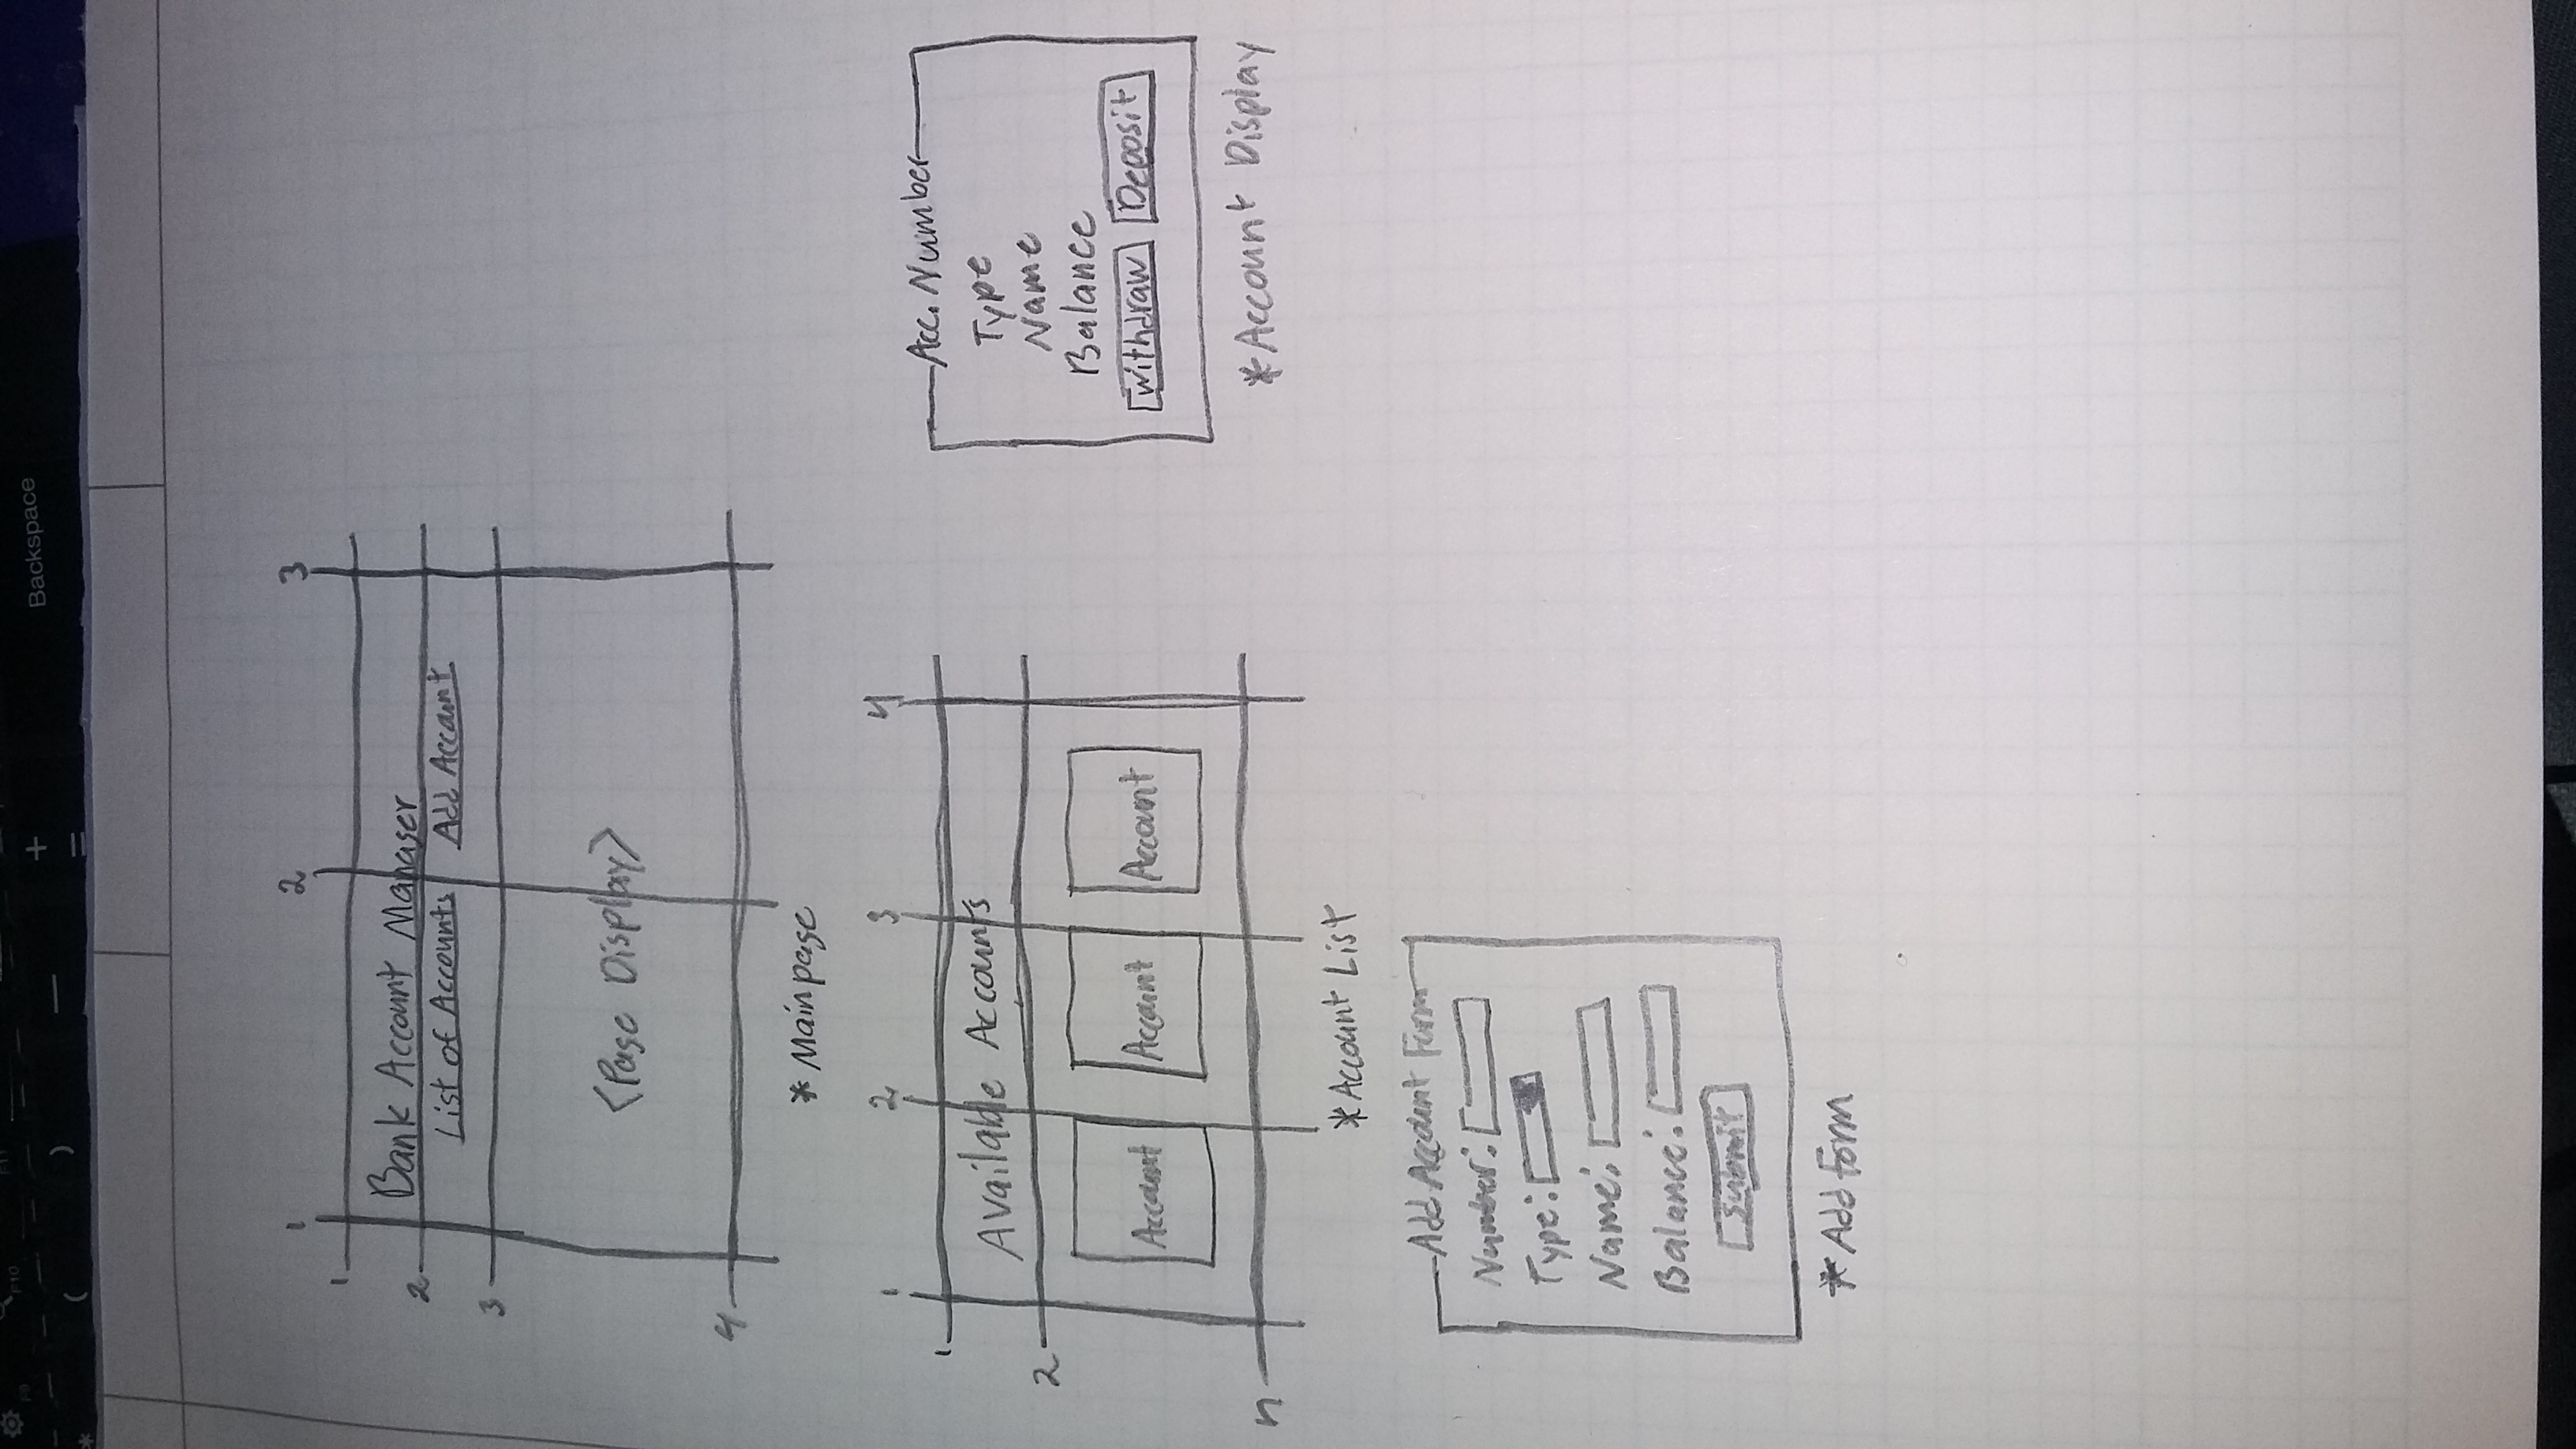 F9 F10 F11
* ( ) — + =
Backspace
1 2 3
1
Bank Account Manager
2
List of Accounts Add Account
3
<Page Display>
4
* Main page
1 2 3 4
1
Available Accounts
2
Account Account Account
n
* Account List
Acc. Number
Type
Name
Balance
Withdraw Deposit
* Account Display
Add Account Form
Number:
Type:
Name:
Balance:
Submit
* Add Form